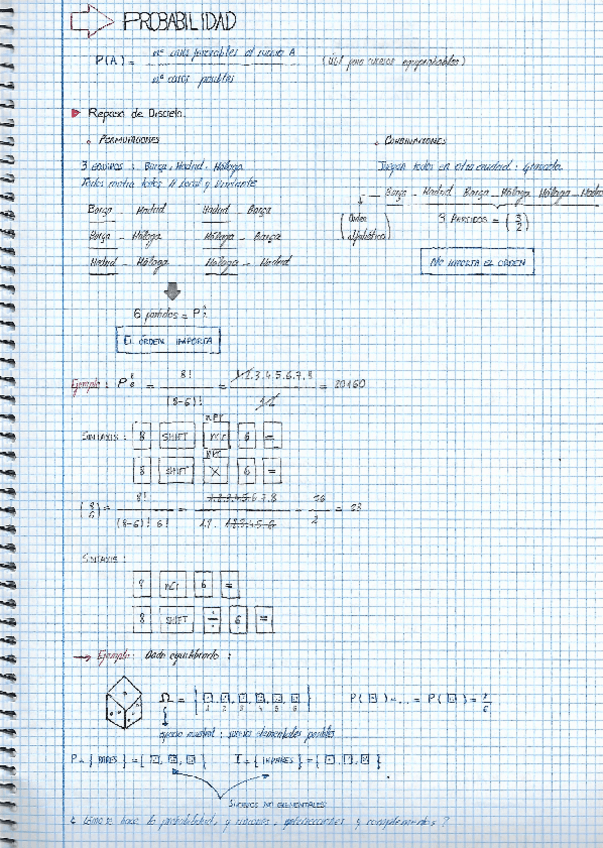 PROBABILIDAD
P(A) = nº casos favorables al suceso A / nº casos posibles (Útil para sucesos equiprobables)
Repaso de Discreta.
PERMUTACIONES
3 equipos : Barça, Madrid, Málaga
Todos contra todos
Barça - Madrid Madrid - Barça
Barça - Málaga Málaga - Barça
Madrid - Málaga Málaga - Madrid
6 partidos = P
EL ORDEN IMPORTA
COMBINACIONES
Juegan todos en otra ciudad :
Barça - Madrid Barça - Málaga Málaga - Madrid
(Orden alfabético)
3 PARTIDOS = (3 2)
NO IMPORTA EL ORDEN
Ejemplo : P = 8! / (8-6)! = 1.2.3.4.5.6.7.8 / 1.2 = 20160
SINTAXIS : 8 SHIFT nCr 6 =
nPr
8 SHIFT X 6 =
(8 6) = 8! / (8-6)! 6! = 1.2.3.4.5.6.7.8 / 1.2. 1.2.3.4.5.6 = 56 / 2 = 28
SINTAXIS :
nCr 6 =
8 SHIFT ÷ 6 =
Ejemplo: Dado equilibrado :
Ω = { 1 2 3 4 5 6 } P( ) = ... = P( ) = 1/6
espacio muestral : sucesos elementales posibles
P = { PARES } = { , , } I = { IMPARES } = { , , }
SUCESOS NO ELEMENTALES
¿ Cómo se hace la probabilidad, y uniones, intersecciones y complementos ?